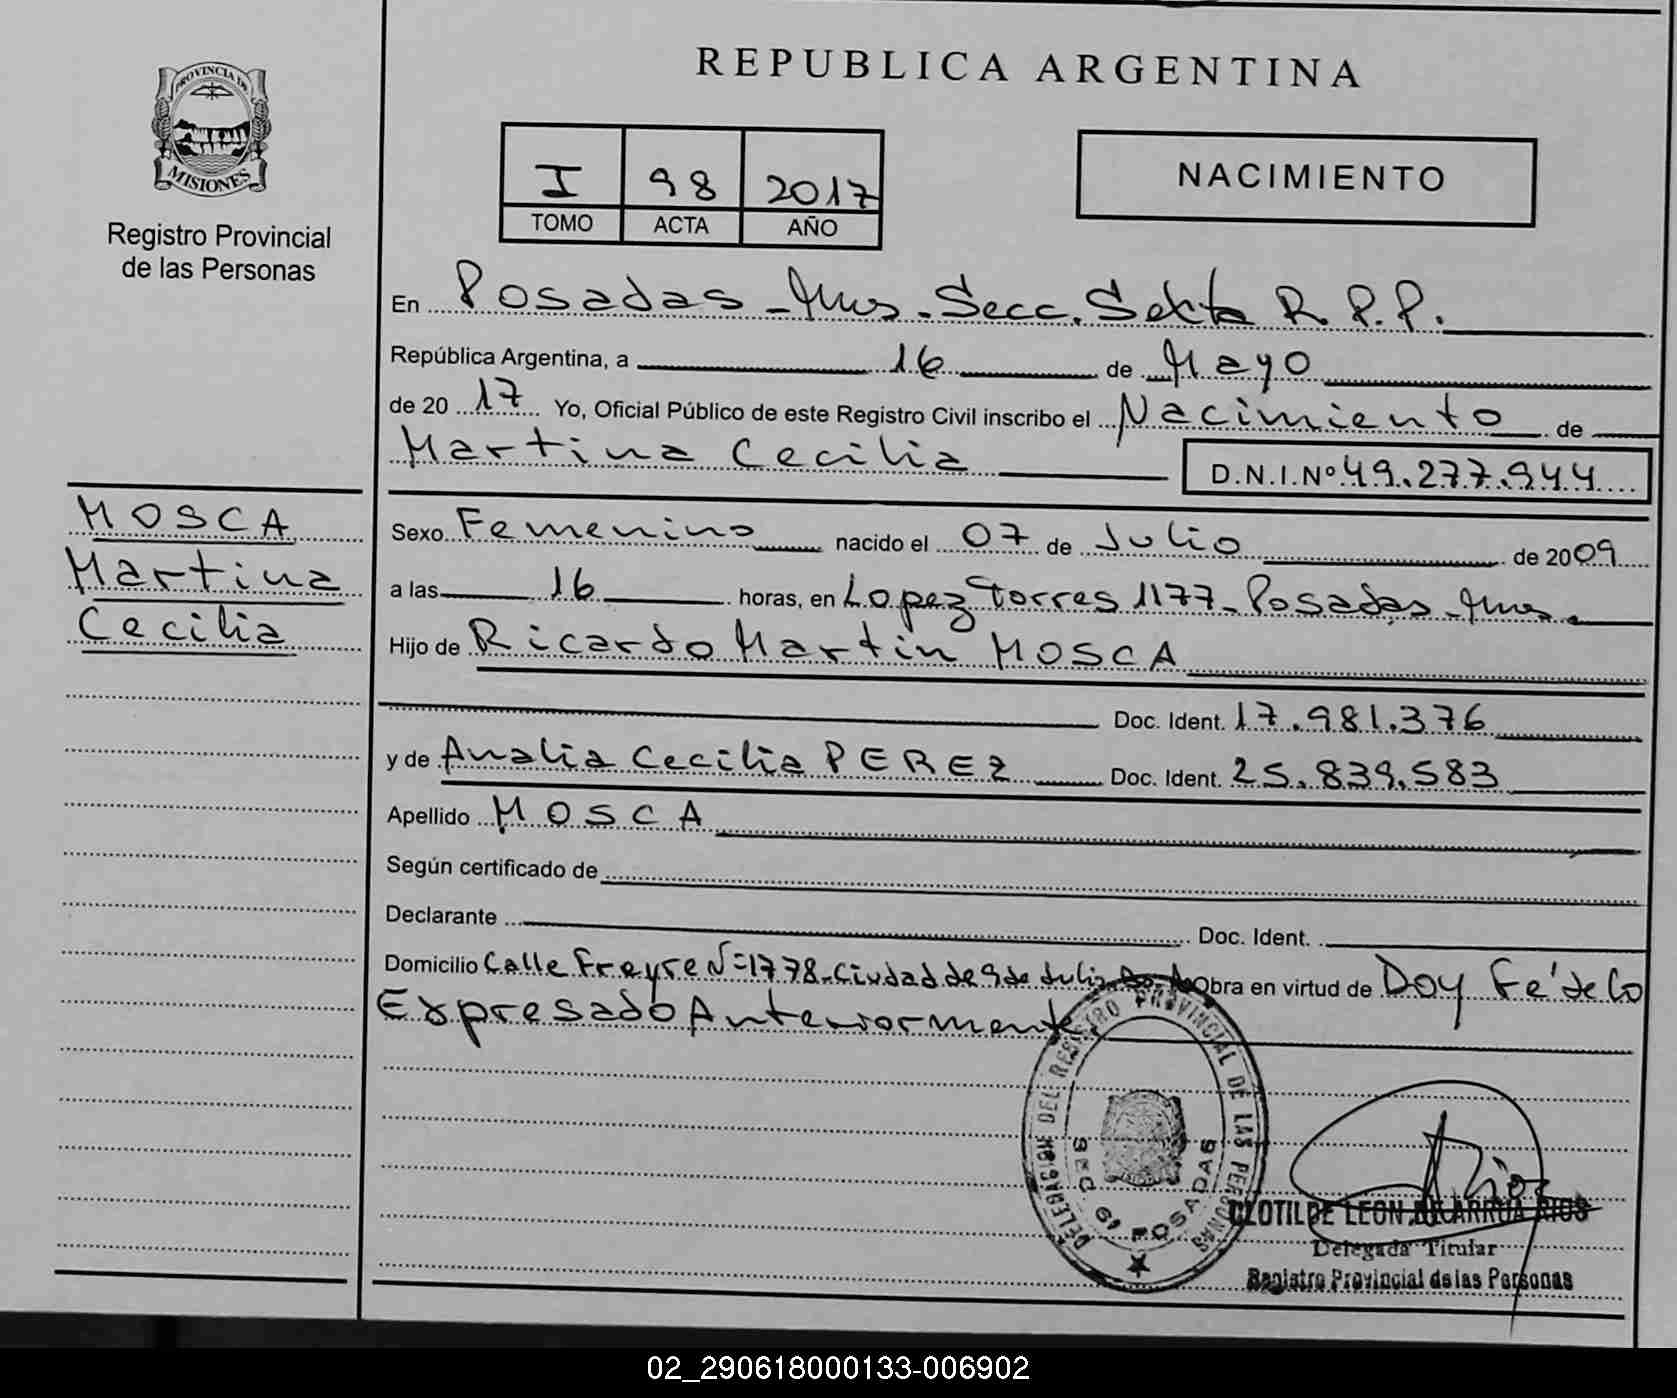 REPUBLICA ARGENTINA
PROVINCIA DE
MISIONES
Registro Provincial
de las Personas
I 98 2017
TOMO ACTA AÑO
NACIMIENTO
En Posadas - Mnes. Secc. Sexta R.P.P.
República Argentina, a 16 de Mayo
de 2017 Yo, Oficial Público de este Registro Civil inscribo el Nacimiento de
Martina Cecilia D.N.I.Nº 49.277.944
MOSCA
Martina
Cecilia
Sexo Femenino nacido el 07 de Julio de 2009
a las 16 horas, en Lopez Torres 1177 - Posadas - Mnes.
Hijo de Ricardo Martin MOSCA
Doc. Ident. 17.981.376
y de Analia Cecilia PEREZ Doc. Ident. 25.839.583
Apellido MOSCA
Según certificado de
Declarante Doc. Ident.
Domicilio Calle Freyre Nº 1778 - Ciudad de 9 de Julio Obra en virtud de Doy Fé de lo
Expresado Anteriormente.
DELEGACION DEL REGISTRO PROVINCIAL DE LAS PERSONAS
SEC. 6ª POSADAS
CLOTILDE LEON RIOS
Delegada Titular
Registro Provincial de las Personas
02_290618000133-006902